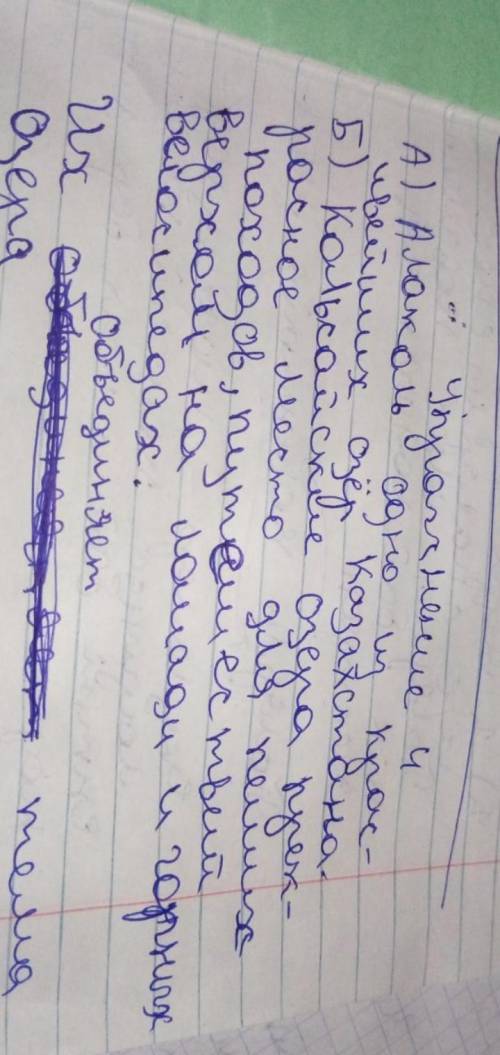 Упрогнение 4
А) Алаколь одно из крас-
ивейших озёр Казахстана.
Б) Кольсайские озера прек-
расное место для пеших
походов, путешествий
верхом на лошади и горных
велосипедах.
Объединяет
Их тема
Озера